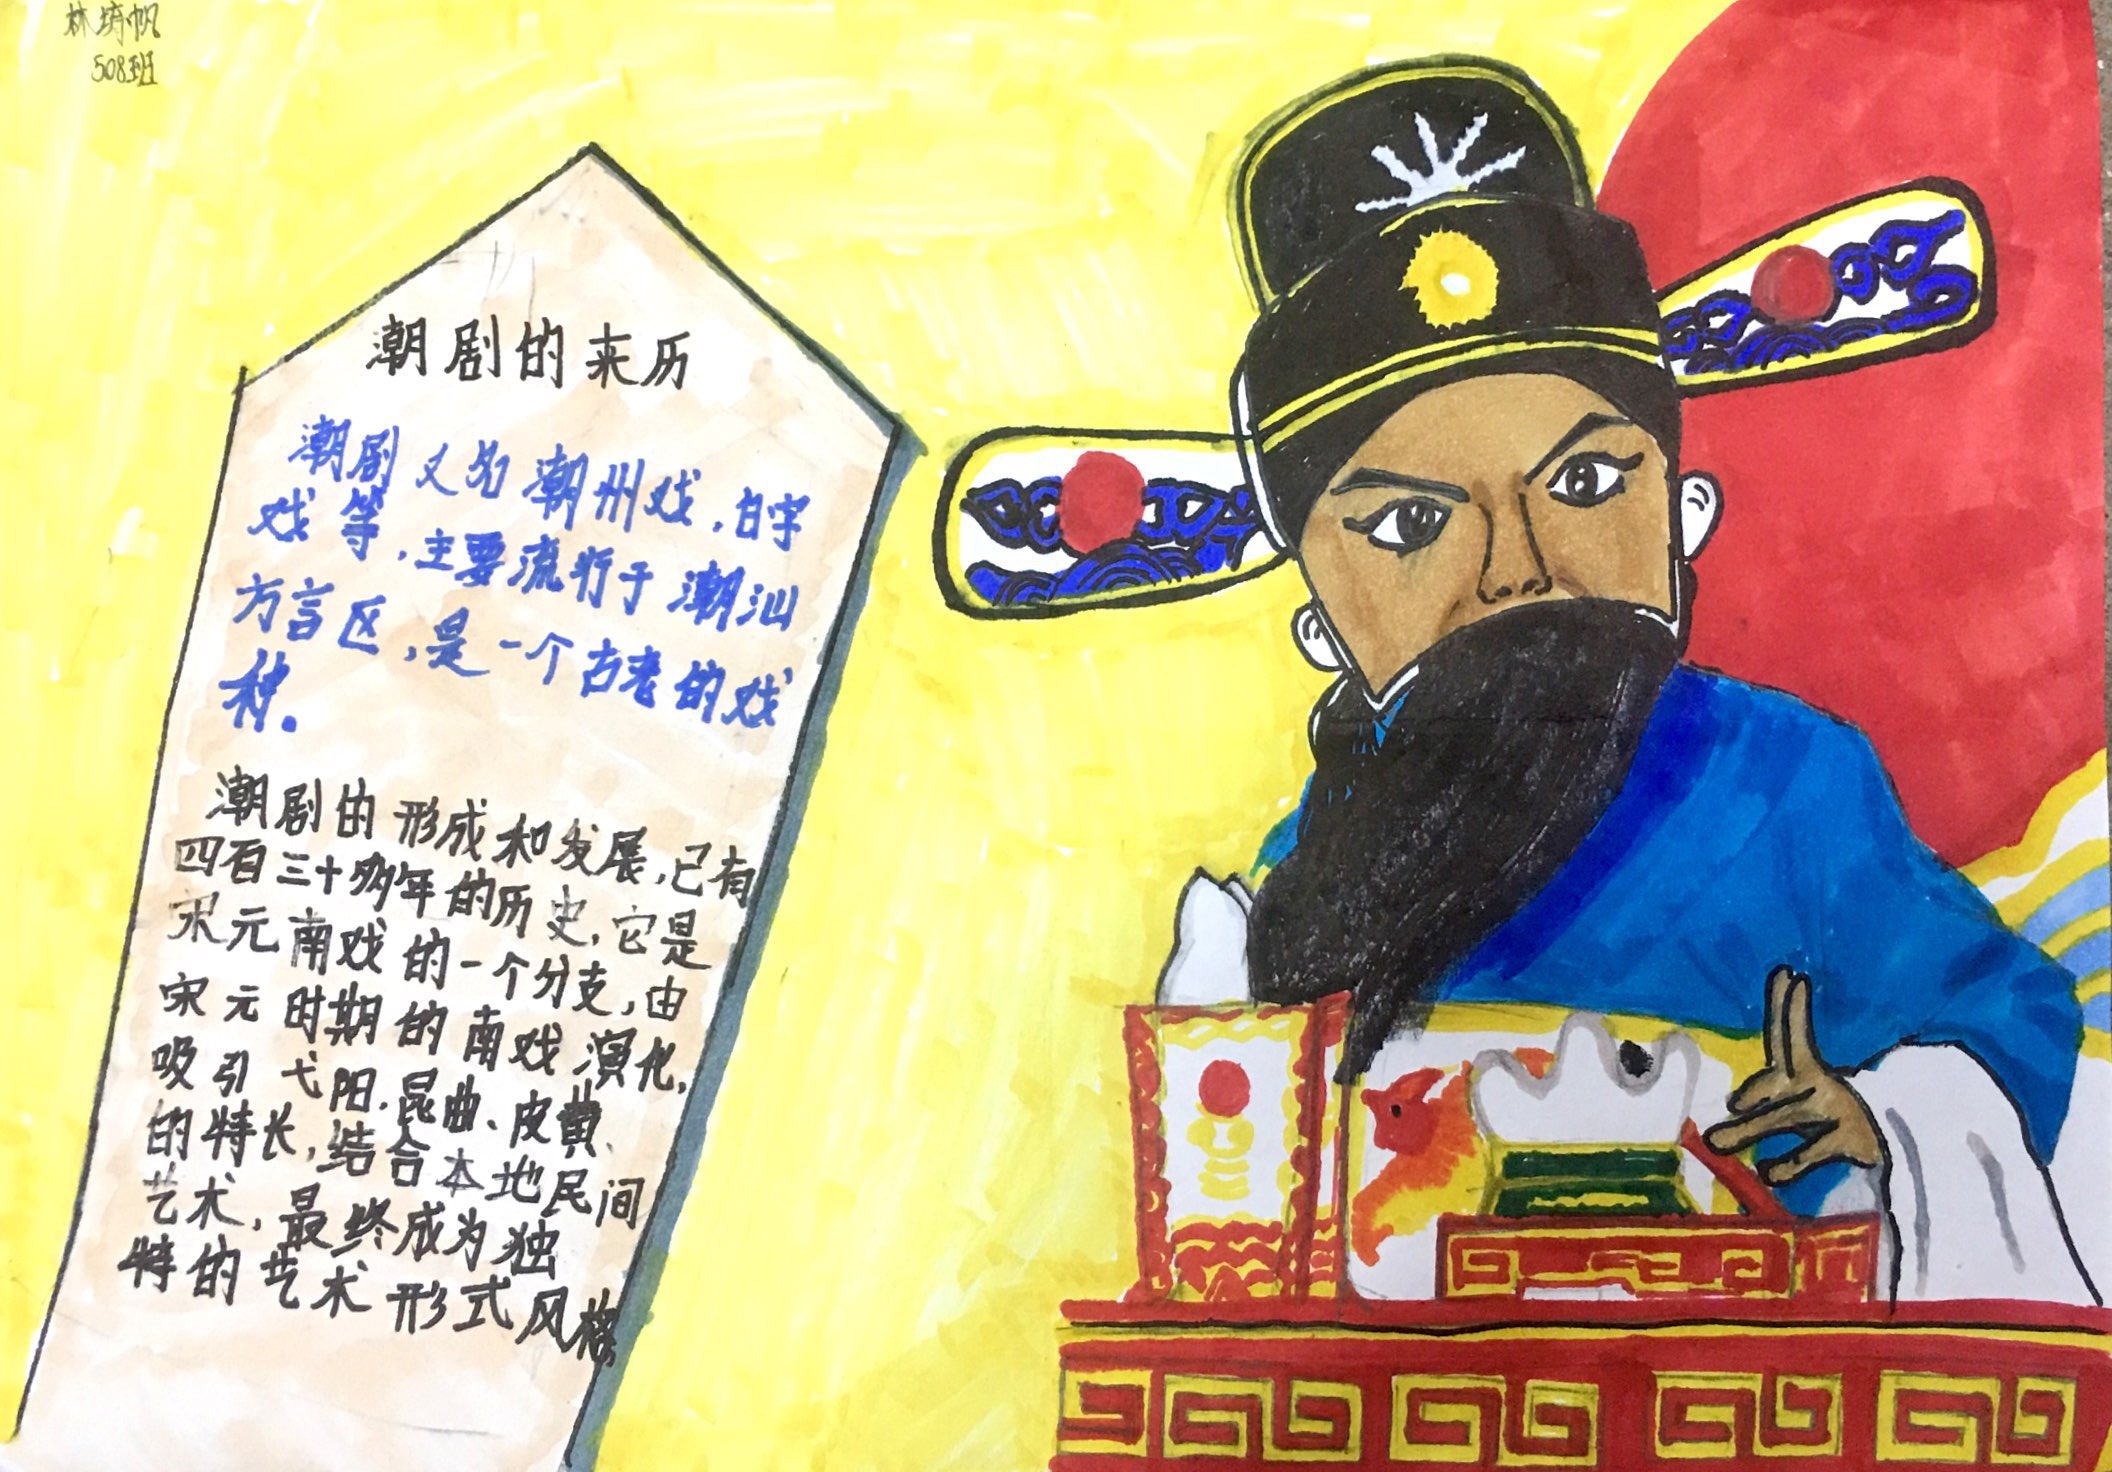 林堉帆
508班
潮剧的来历
潮剧又名潮州戏,白字
戏等,主要流行于潮汕
方言区,是一个古老的戏
种。
潮剧的形成和发展,已有
四百三十多年的历史,它是
宋元南戏的一个分支,由
宋元时期的南戏演化,
吸引弋阳.昆曲、皮黄、
的特长,结合本地民间
艺术,最终成为独
特的艺术形式风格,